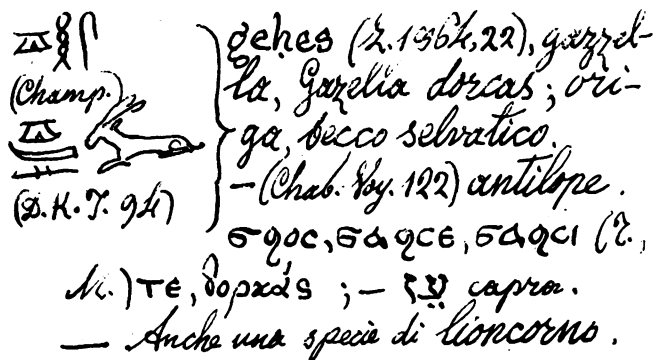 𓎼𓎛𓋴
(Champ.)
(D.K.T. 94)
gehes (Z. 1864, 22), gazzel-
la, Gazella dorcas; ori-
ga, becco selvatico.
— (Chab. Voy. 122) antilope.
ϭϩⲟⲥ, ϭⲁϩⲥⲉ, ϭⲁϩⲥⲓ (T.,
M.) ⲧⲉ, δορκάς ; — עֵז capra.
— Anche una specie di lioncorno.